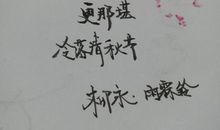 更那堪
冷落清秋节
柳永·雨霖铃